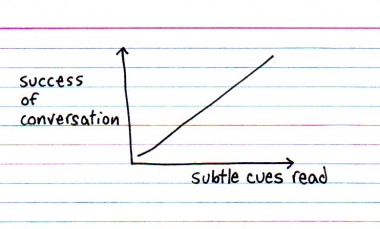 success
of
conversation
subtle cues read